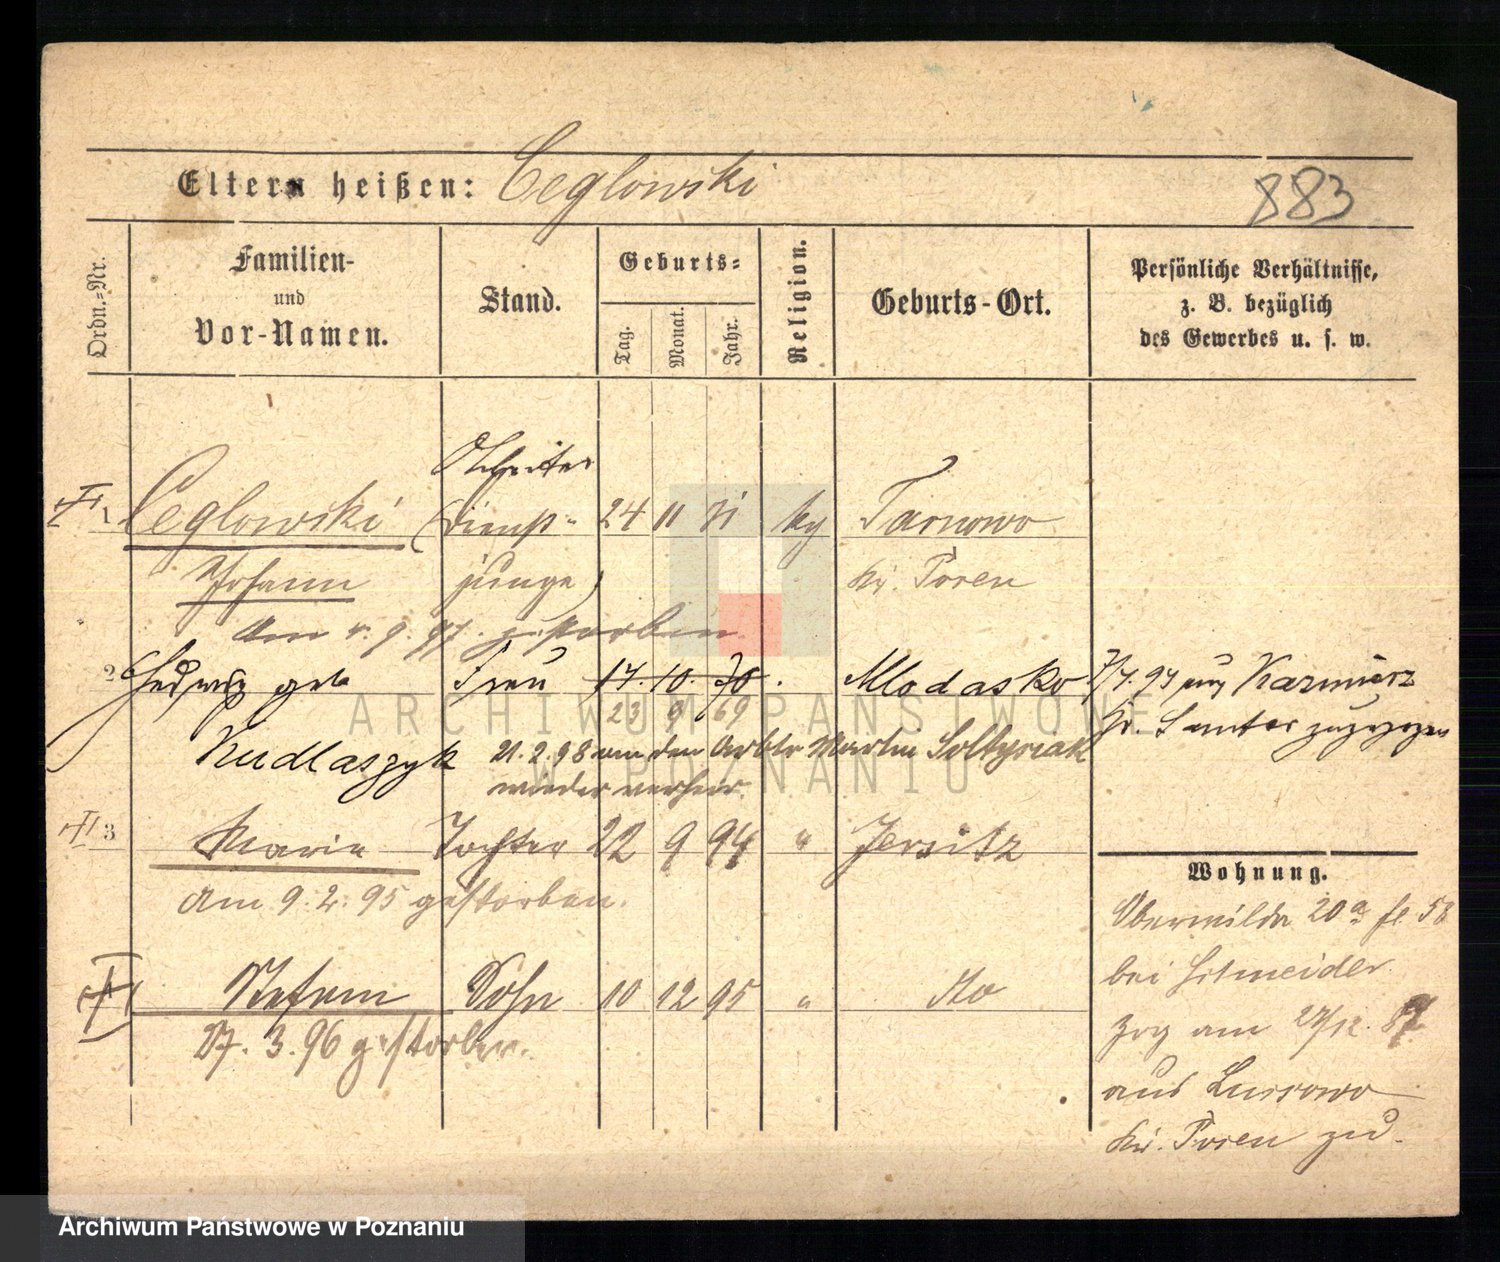 Eltern heißen: Ceglowski
883
Ordn.-Nr.
Familien-
und
Vor-Namen.
Stand.
Geburts-
Tag.
Monat.
Jahr.
Religion.
Geburts-Ort.
Persönliche Verhältnisse,
z. B. bezüglich
des Gewerbes u. s. w.
Arbeiter
1 Ceglowski (Dienst- 24 11 71 kg Tarnowo
Johann junge) Kr. Posen
am 5. 9. 97. gestorben
2 Hedwig geb Frau 17. 10. 70. Mlodasko 7/7. 97 Kazmierz
23 9 69 Kr. Samter zugezogen
Kudlaszyk 21. 2. 98 an den Arbtr Martin Soltysiak
wieder verheir.
3 Marie Tochter 22 9 94 " Jersitz
am 9. 2. 95 gestorben.
Wohnung.
Oberwilda 20a fl. 58
bei Schneider
Stefan Sohn 10 12 95 " dto
27. 3. 96 gestorben.
zog am 27/12. 87
aus Lussowo
Kr. Posen zu.
ARCHIWUM PAŃSTWOWE
W POZNANIU
Archiwum Państwowe w Poznaniu